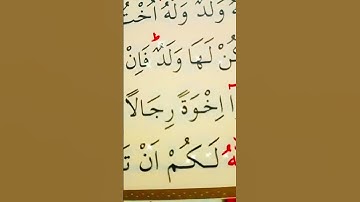 وَلَدٌ وَلَهُٓ اُخْتٌ
لَهَا وَلَدٌ فَاِنْ
اِخْوَةً رِجَالًا
لَكُمْ اَنْ